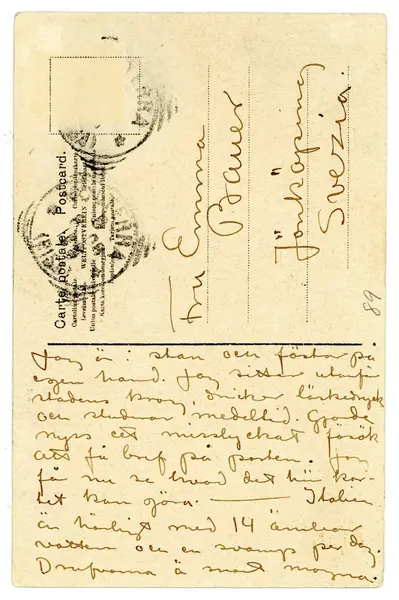 Carte postale. Postcard.
WELTPOSTVEREIN
Fru Emma
Bauer
Jönköping
Svezia.
89
Jag är i stan och fröstar på
egen hand. Jag sitter utanför
stadens krog, dricker läskedryck
och studerar medeltid. Gjorde
nyss ett misslyckat försök
att få bref på posten. Jag
få nu se hvad det här kor-
tet kan göra. — Italien
är härligt med 14 ämbar
vatten och en svamp per dag.
Drufvorna ä snart mogna.